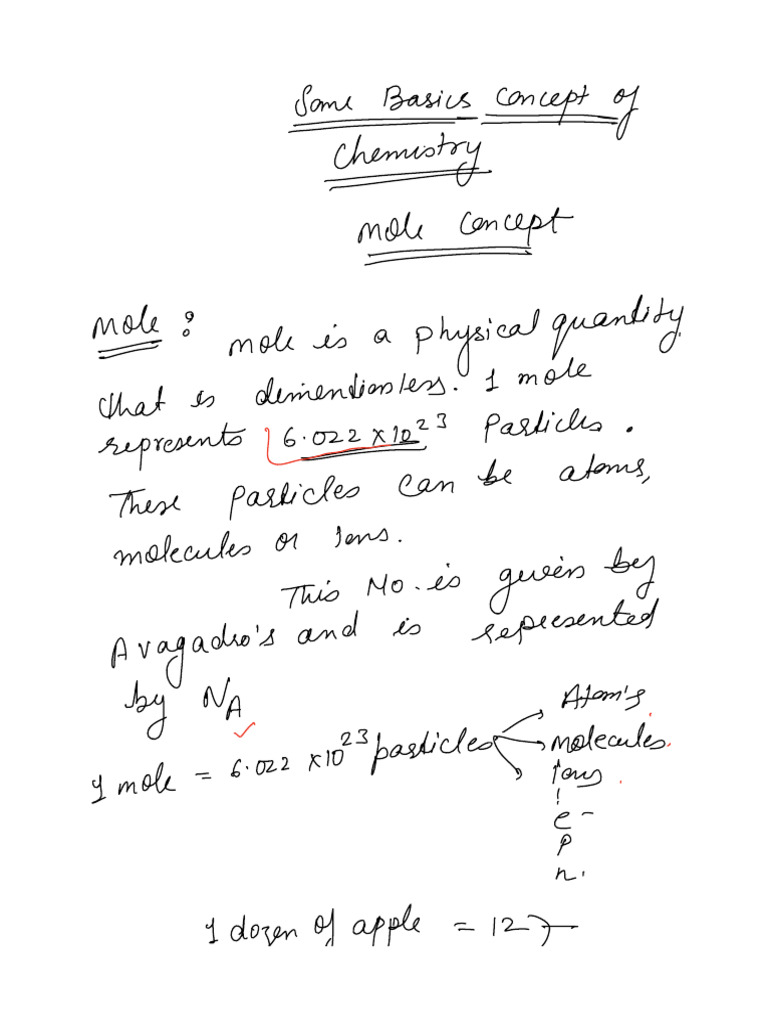 Some Basics Concept of
Chemistry
Mole Concept
Mole : Mole is a physical quantity
that is dimendionless. 1 mole
represents 6.022 x 10²³ Particles.
These Particles can be atoms,
molecules or Ions.
This No. is given by
Avagadro's and is represented
by Nᴀ
Atom's
1 mole = 6.022 x 10²³ particles
molecules.
Ions
e -
p
n.
1 dozen of apple = 12